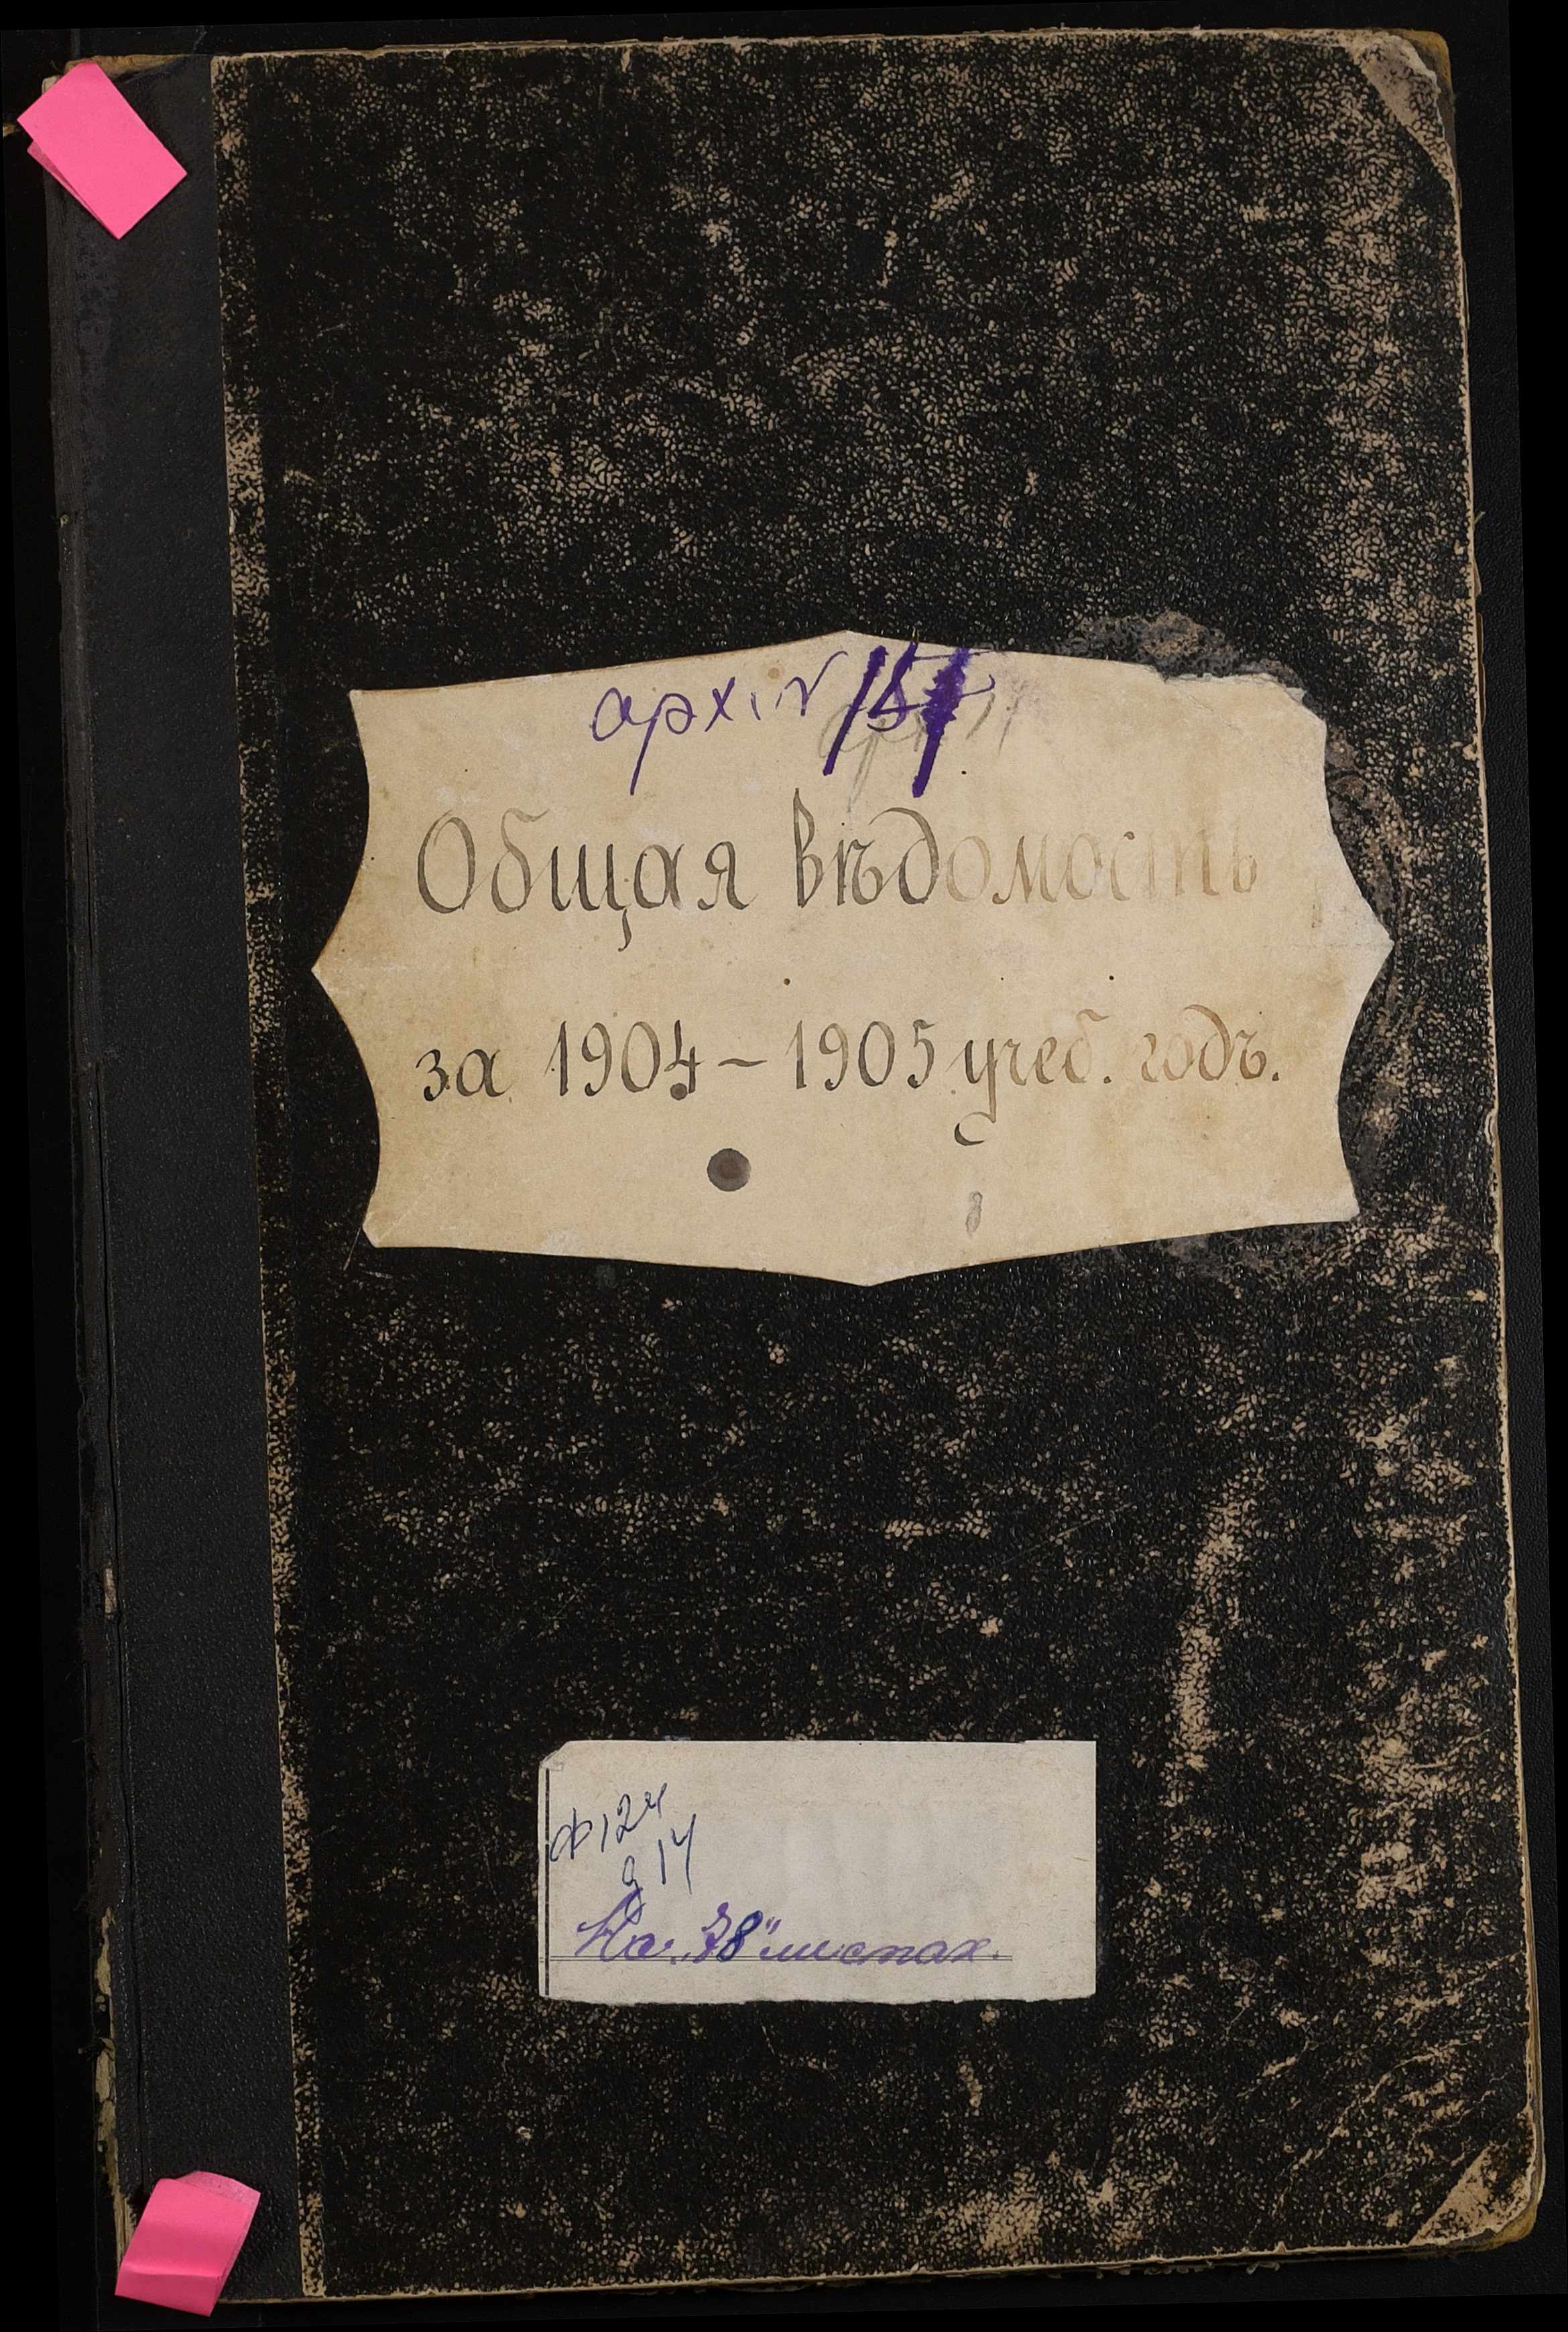 Общая вѣдомость
за 1904 – 1905 учеб. годъ.
ф 124
д 14
На „78" листах.